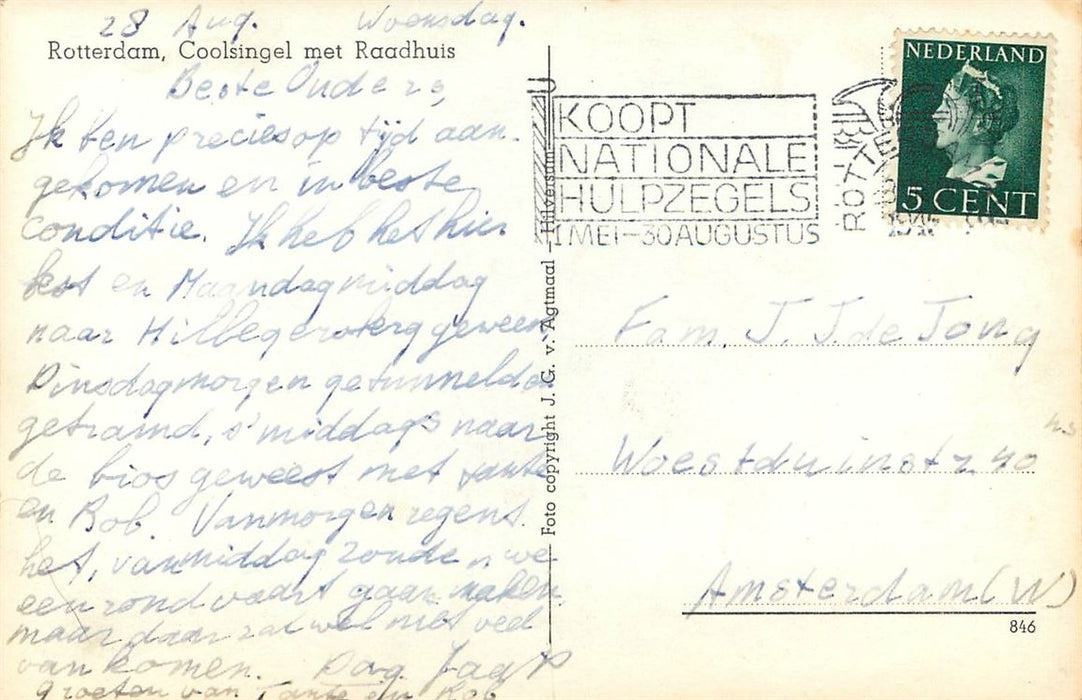 28 Aug. Woensdag.
Rotterdam, Coolsingel met Raadhuis
Beste Ouders,
Ik ben precies op tijd aan-
gekomen en in beste
conditie. Ik heb het hier
best en Maandagmiddag
naar Hillegersberg geweest
Dinsdagmorgen getunneld en
getramd, s'middags naar
de bios geweest met tante
en Rob. Vanmorgen regent
het, vanmiddag zouden we
een rondvaart gaan maken
maar daar zal wel niet veel
van komen. Dag Jaap
Groeten van Tante en Rob
Foto copyright J. G. v. Agtmaal — Hilversum
KOOPT
NATIONALE
HULPZEGELS
1 MEI-30 AUGUSTUS
ROTTE
NEDERLAND
5 CENT
Fam. J. J. de Jong
Woestduinstr 40
hs
Amsterdam (W)
846